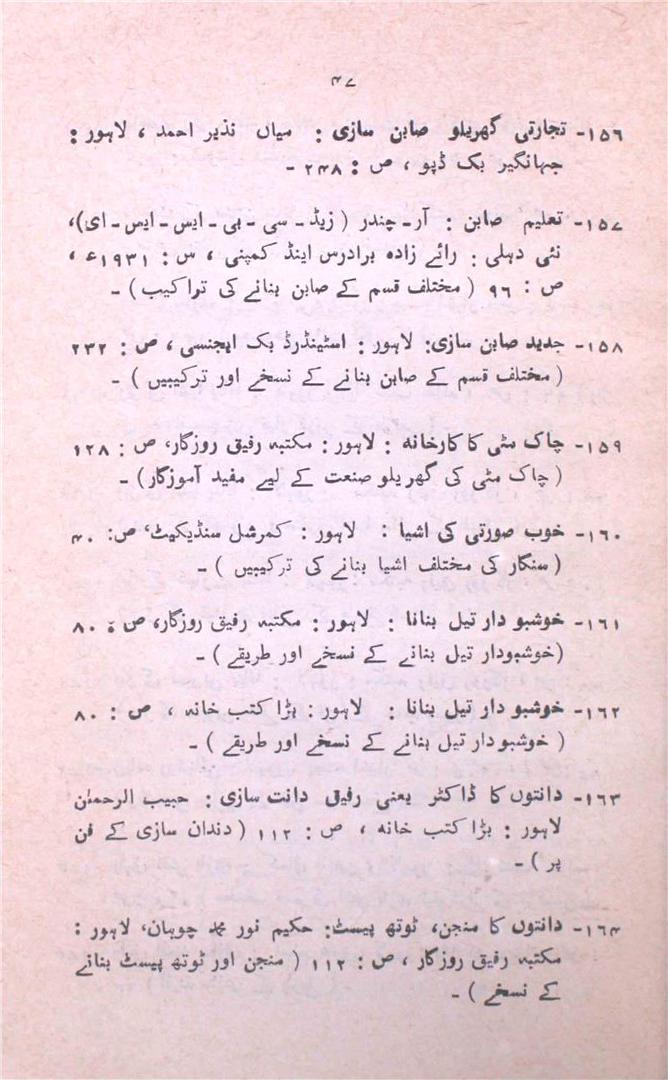 ۴۷
۱۵۶- تجارتی گھریلو صابن سازی : میاں نذیر احمد ، لاہور :
جہانگیر بک ڈپو ، ص : ۲۴۸ -
۱۵۷- تعلیم صابن : آر - چندر ( زیڈ - سی - بی - ایس - ایس - ای)،
نئی دہلی : رائے زادہ برادرس اینڈ کمپنی ، س : ۱۹۳۱ء ،
ص : ۹۶ ( مختلف قسم کے صابن بنانے کی تراکیب ) -
۱۵۸- جدید صابن سازی: لاہور : اسٹینڈرڈ بک ایجنسی ، ص : ۲۳۲
( مختلف قسم کے صابن بنانے کے نسخے اور ترکیبیں ) -
۱۵۹- چاک مٹی کا کارخانہ : لاہور : مکتبہ رفیق روزگار، ص : ۱۲۸
( چاک مٹی کی گھریلو صنعت کے لیے مفید آموزگار) -
۱۶۰- خوب صورتی کی اشیا : لاہور : کمرشل سنڈیکیٹ، ص: ۴۰
( سنگار کی مختلف اشیا بنانے کی ترکیبیں ) -
۱۶۱- خوشبو دار تیل بنانا : لاہور : مکتبہ رفیق روزگار، ص : ۸۰
(خوشبودار تیل بنانے کے نسخے اور طریقے ) -
۱۶۲- خوشبو دار تیل بنانا : لاہور : بڑا کتب خانہ ، ص : ۸۰
( خوشبو دار تیل بنانے کے نسخے اور طریقے ) -
۱۶۳- دانتوں کا ڈاکٹر یعنی رفیق دانت سازی : حبیب الرحمٰن
لاہور : بڑا کتب خانہ ، ص : ۱۱۲ ( دندان سازی کے فن
پر ) -
۱۶۴- دانتوں کا منجن، ٹوتھ پیسٹ: حکیم نور محمد چوہان، لاہور :
مکتبہ رفیق روزگار ، ص : ۱۱۲ ( منجن اور ٹوتھ پیسٹ بنانے
کے نسخے ) -